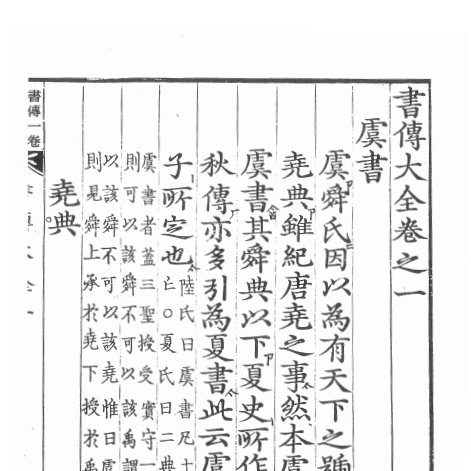 書傳大全卷之一
虞書
虞舜氏因以為有天下之號
堯典雖紀唐堯之事然本虞
虞書其舜典以下夏史所作
秋傳亦多引為夏書此云虞
子所定也
陸氏曰虞書凡十
亡○夏氏曰二典
虞書者蓋三聖授受實守一
則可以該舜不可以該禹謂
以該舜不可以該堯惟曰虞
則見舜上承於堯下授於禹
堯典
書傳一卷